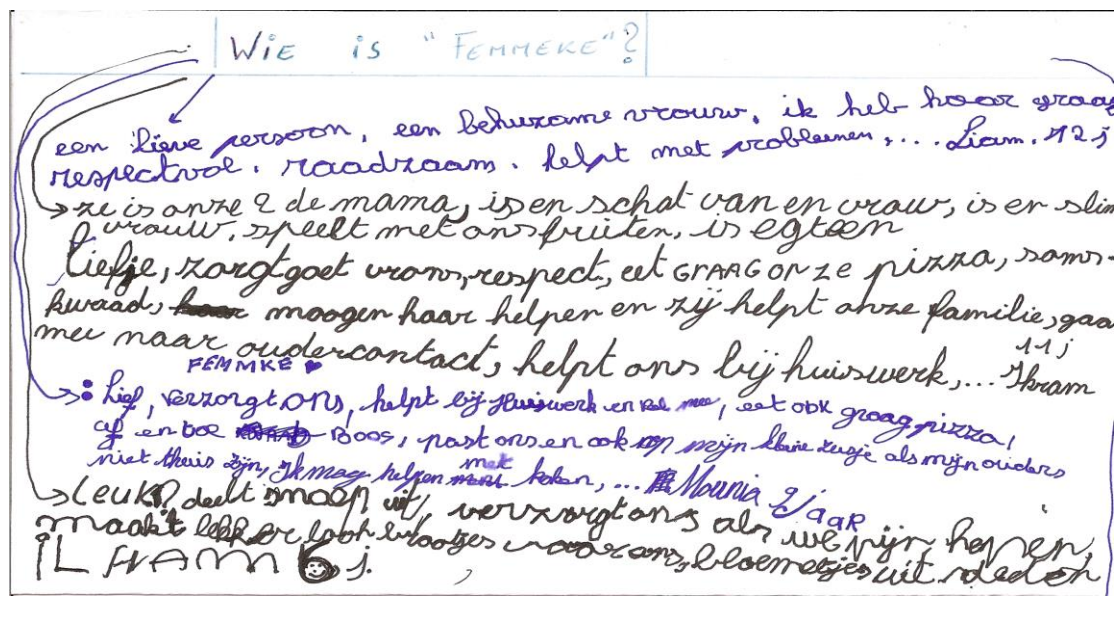 Wie is "FEMMEKE"?
een lieve persoon, een behulzame vrouw, ik heb haar graag
respectvol. raadzaam. helpt met problemen,... Liam. 12 j
ze is onze 2 de mama, is en schat van en vrouw, is er slim
vrouw, speelt met ons buiten, is egt een
liefje, zorgt goet vr ons, respect, eet GRAAG ONZE pizza, soms
kwaad, moogen haar helpen en zij helpt onze familie, gaa
mee naar oudercontact, helpt ons bij huiswerk,... Ikram
11 j
FEMMKE ♥
: Lief, verzorgt ons, helpt bij Huiswerk en mee, eet ook graag pizza,
af en toe BOOS, past ons en ook op mijn kleine zusje als mijn ouders
niet thuis zijn, Ik mag helpen met koken,... Mounia 9 jaar
Leuk, deelt snoep uit, verzorgt ons als we pijn hepen,
maakt lekker look brootjes voor ons, bloemetjes uit
ILHAM 6 j.